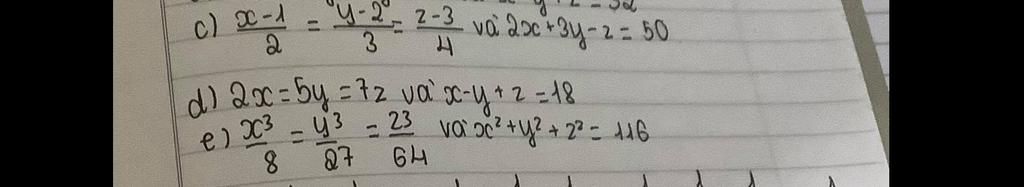 c) \frac{x-1}{2} = \frac{y-2}{3} = \frac{z-3}{4} và 2x+3y-z=50
d) 2x=5y=7z và x-y+z=18
e) \frac{x^3}{8} = \frac{y^3}{27} = \frac{z^3}{64} và x²+y²+z²=116